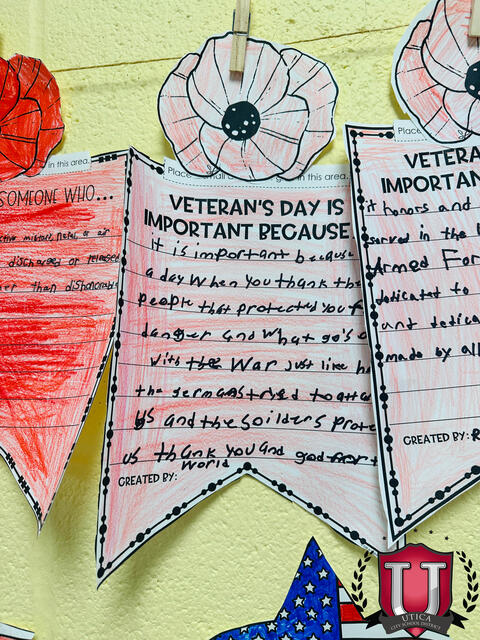 in this area.
SOMEONE WHO...
discharged or released
than dishonorable
Place
in this area.
VETERAN'S DAY IS
IMPORTANT BECAUSE
It is important because
a day When you thank the
people that protected you
danger and What go's
With the War Just like
the germans tried to
us and the Soilders prote
us thank you and god
World
CREATED BY:
Place
VETERA
IMPORTAN
it honors and
served in the
Armed For
dedicated to
and dedica
made by all
CREATED BY:
U
UTICA
CITY SCHOOL DISTRICT